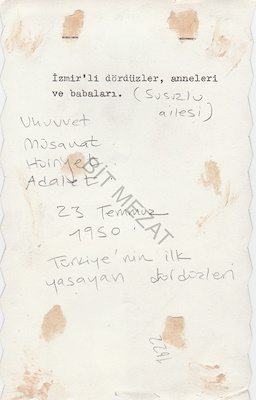 İzmir'li dördüzler, anneleri
ve babaları. (Susuzlu
ailesi)
Uhuvvet
Müsavat
Hürriyet
Adalet
BİT MEZAT
23 Temmuz
1950
Türkiye'nin ilk
yaşayan dördüzleri
1622